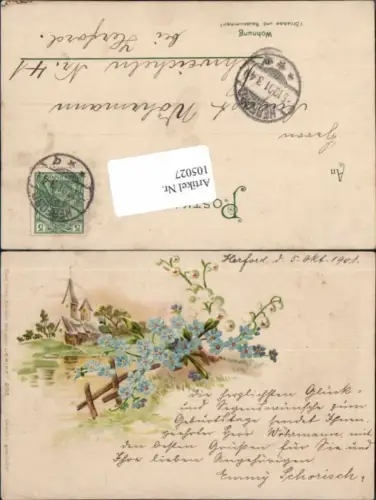 An
Herrn
August Wöhrmann
Schweicheln Nr. 41
bei Herford.
Wohnung
(Strasse und Hausnummer)
HERFORD
5
Artikel Nr.
105027
Herford d. 5. Okt. 1901.
Die herzlichsten Glück-
und Segenswünsche zum
Geburtstage sendet Ihnen
geehrter Herr Wöhrmann mit
den besten Grüßen für Sie und
Ihre lieben Angehörigen
Emmy Schorisch.